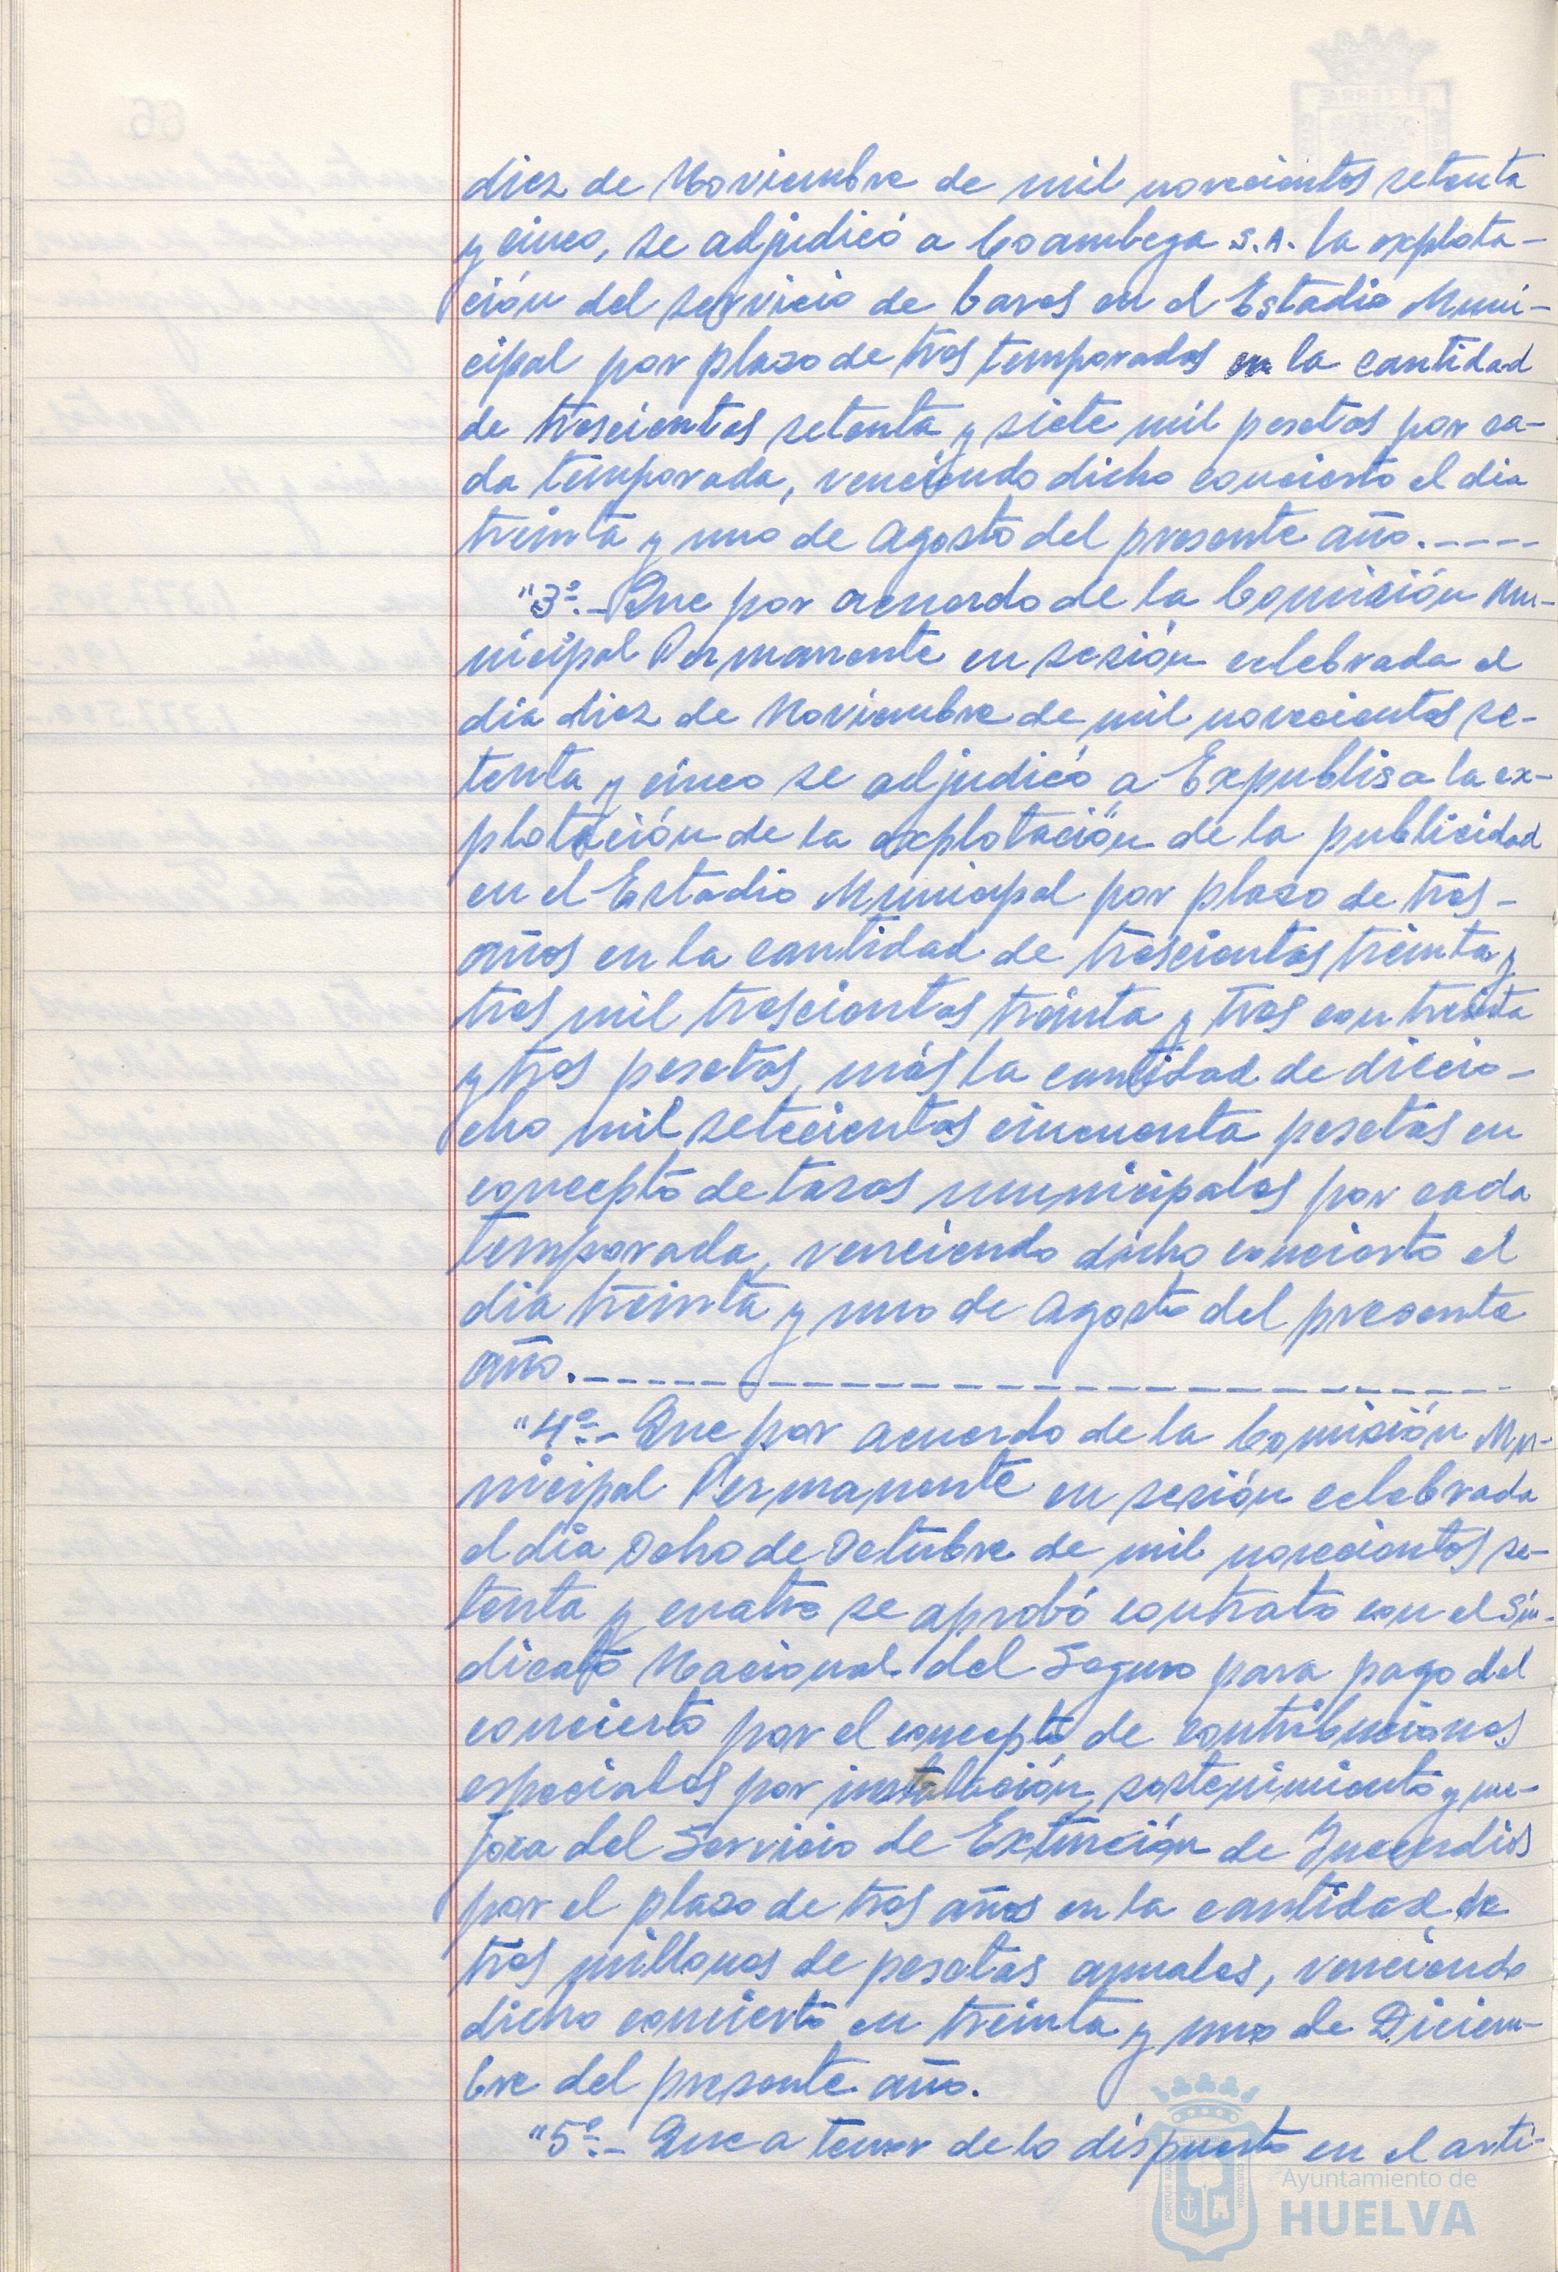 diez de Noviembre de mil novecientos setenta
y cinco, se adjudicó a Coambega S.A. la explota-
ción del servicio de bares en el Estadio Muni-
cipal por plazo de tres temporadas en la cantidad
de trescientas setenta y siete mil pesetas por ca-
da temporada, venciendo dicho concierto el dia
treinta y uno de Agosto del presente año.----
"3º.- Que por acuerdo de la Comisión Mu-
nicipal Permanente en sesión celebrada el
dia diez de Noviembre de mil novecientos se-
tenta y cinco se adjudicó a Expublisa la ex-
plotación de la explotación de la publicidad
en el Estadio Municipal por plazo de tres-
años en la cantidad de trescientas treinta y
tres mil trescientas treinta y tres con treinta
y tres pesetas, más la cantidad de diecio-
cho mil setecientas cincuenta pesetas en
concepto de tasas municipales por cada
temporada, venciendo dicho concierto el
dia treinta y uno de Agosto del presente
año.--------------------
"4º.- Que por acuerdo de la Comisión Mu-
nicipal Permanente en sesión celebrada
el dia Ocho de Octubre de mil novecientos se-
tenta y cuatro se aprobó contrato con el Sin-
dicato Nacional del Seguro para pago del
concierto por el concepto de contribuciones
especiales por instalación, sostenimiento y me-
jora del Servicio de Extinción de Incendios
por el plazo de tres años en la cantidad de
tres millones de pesetas anuales, venciendo
dicho concierto en treinta y uno de Diciem-
bre del presente año.
"5º.- Que a tenor de lo dispuesto en el arti-
Ayuntamiento de
HUELVA